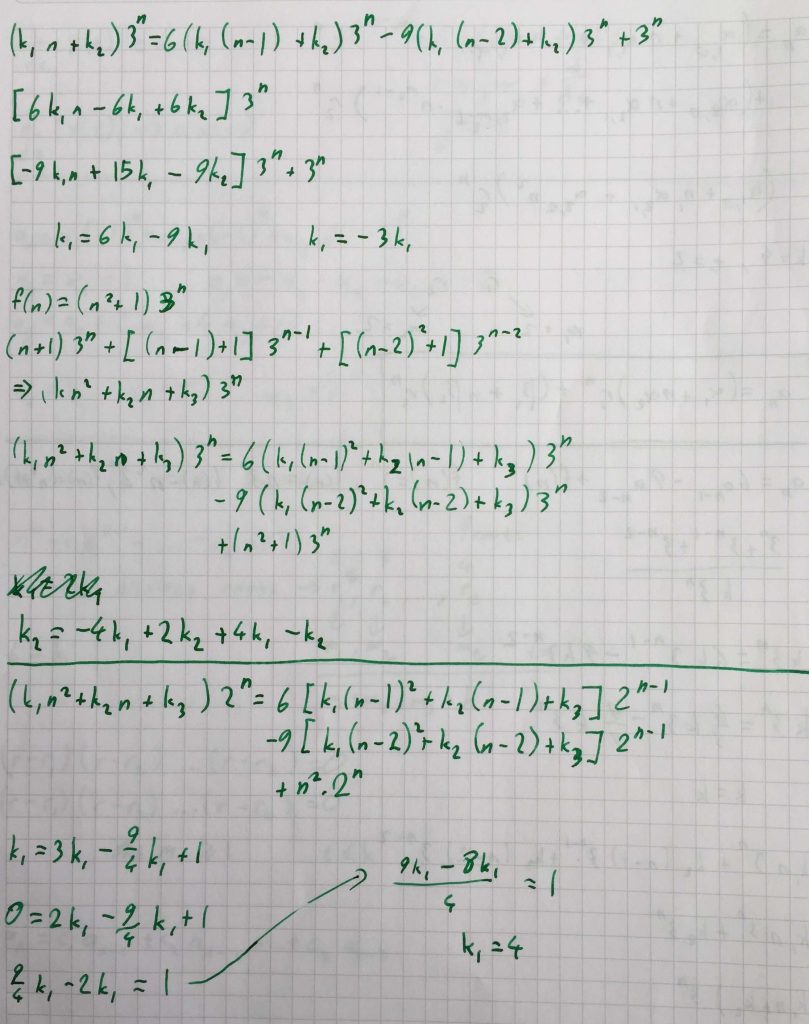 (k₁ n + k₂) 3ⁿ = 6(k₁ (n-1) + k₂) 3ⁿ - 9(k₁ (n-2) + k₂) 3ⁿ + 3ⁿ
[6k₁n - 6k₁ + 6k₂] 3ⁿ
[-9k₁n + 15k₁ - 9k₂] 3ⁿ + 3ⁿ
k₁ = 6k₁ - 9k₁ k₁ = -3k₁
f(n) = (n² + 1) 3ⁿ
(n+1) 3ⁿ + [(n-1)+1] 3ⁿ⁻¹ + [(n-2)² + 1] 3ⁿ⁻²
⇒ (kn² + k₂n + k₃) 3ⁿ
(k₁n² + k₂n + k₃) 3ⁿ = 6(k₁(n-1)² + k₂(n-1) + k₃) 3ⁿ
- 9(k₁(n-2)² + k₂(n-2) + k₃) 3ⁿ
+(n²+1) 3ⁿ
k₂ = -4k₁ + 2k₂ + 4k₁ - k₂
(k₁n² + k₂n + k₃) 2ⁿ = 6 [k₁(n-1)² + k₂(n-1) + k₃] 2ⁿ⁻¹
-9 [k₁(n-2)² + k₂(n-2) + k₃] 2ⁿ⁻¹
+ n² · 2ⁿ
k₁ = 3k₁ - 9/4 k₁ + 1
0 = 2k₁ - 9/4 k₁ + 1
9/4 k₁ - 2k₁ = 1
(9k₁ - 8k₁)/4 = 1
k₁ = 4